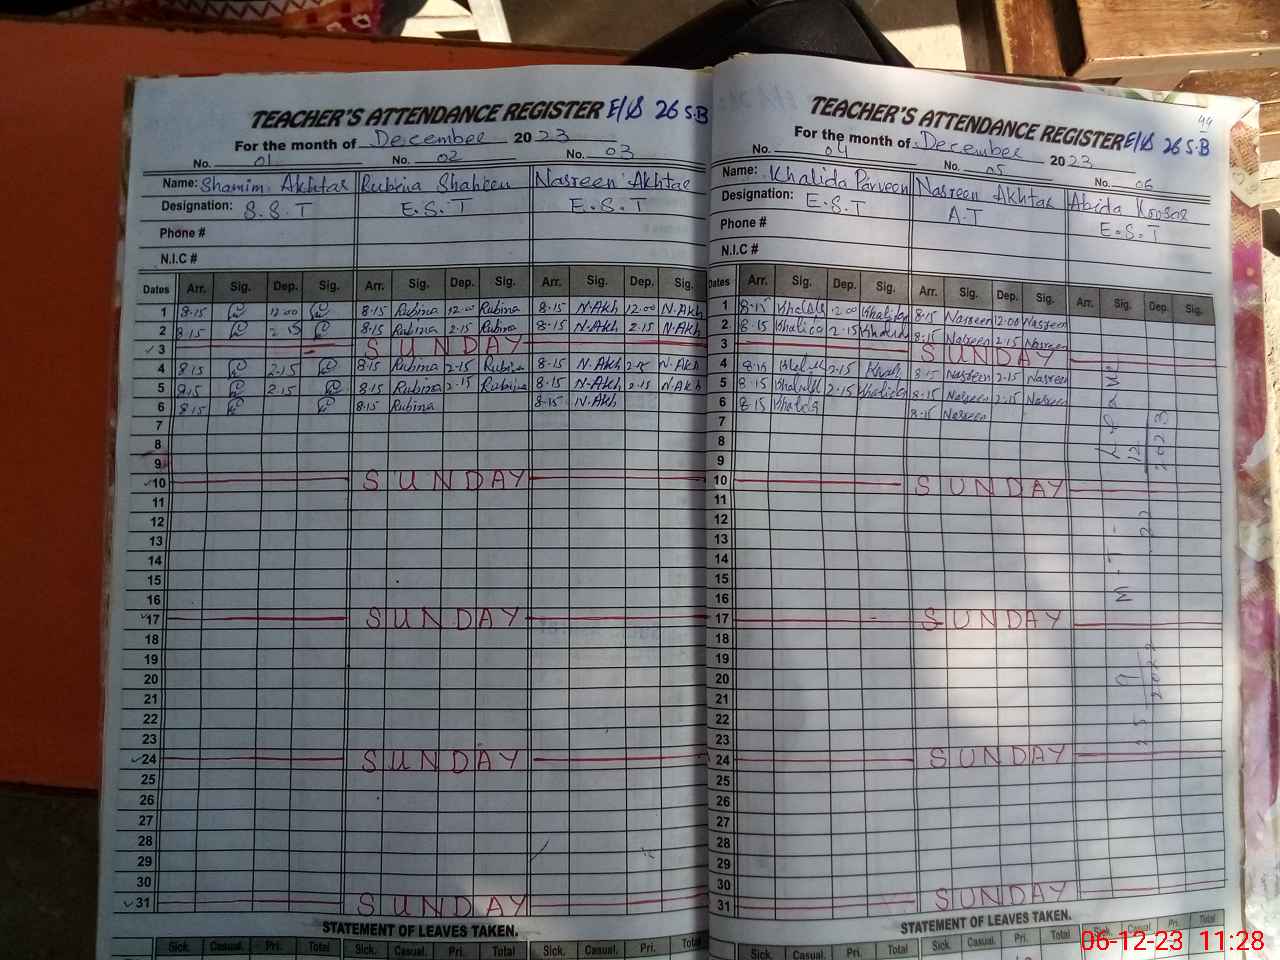 TEACHER'S ATTENDANCE REGISTER E/S 26 S.B
For the month of December 2023
No. 01 No. 02 No. 03
Name: Shamim Akhtar Rubina Shaheen Nasreen Akhtar
Designation: S.S.T E.S.T E.S.T
Phone #
N.I.C #
Dates Arr. Sig. Dep. Sig. Arr. Sig. Dep. Sig. Arr. Sig. Dep. Sig.
1 8.15 12.00 8.15 Rubina 12.00 Rubina 8.15 N.Akh 12.00 N.Akh
2 8.15 2.15 8.15 Rubina 2.15 Rubina 8.15 N.Akh 2.15 N.Akh
3 SUNDAY
4 8.15 2.15 8.15 Rubina 2.15 Rubina 8.15 N.Akh 2.15 N.Akh
5 8.15 2.15 8.15 Rubina 2.15 Rubina 8.15 N.Akh 2.15 N.Akh
6 8.15 8.15 Rubina 8.15 N.Akh
7
8
9
10 SUNDAY
11
12
13
14
15
16
17 SUNDAY
18
19
20
21
22
23
24 SUNDAY
25
26
27
28
29
30
31 SUNDAY
STATEMENT OF LEAVES TAKEN.
Sick. Casual. Pri. Total Sick. Casual. Pri. Total Sick. Casual. Pri. Total
44
TEACHER'S ATTENDANCE REGISTER E/S 26 S.B
For the month of December 2023
No. 04 No. 05 No. 06
Name: Khalida Parveen Nasreen Akhtar Abida Koosar
Designation: E.S.T A.T E.S.T
Phone #
N.I.C #
Dates Arr. Sig. Dep. Sig. Arr. Sig. Dep. Sig. Arr. Sig. Dep. Sig.
1 8.15 12.00 Khalida 8.15 Nasreen 12.00 Nasreen
2 8.15 Khalida 2.15 Khalida 8.15 Nasreen 2.15 Nasreen
3 SUNDAY
4 8.15 2.15 8.15 Nasreen 2.15 Nasreen
5 8.15 2.15 Khalida 8.15 Nasreen 2.15 Nasreen
6 8.15 Khalida 8.15 Nasreen
7
8
9
10 SUNDAY
11
12
13
14
15
16
17 SUNDAY
18
19
20
21
22
23
24 SUNDAY
25
26
27
28
29
30
31 SUNDAY
STATEMENT OF LEAVES TAKEN.
Sick. Casual. Pri. Total Sick. Casual. Pri. Total Sick. Casual. Pri. Total
06-12-23 11:28